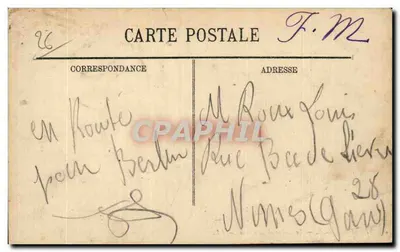 26
CARTE POSTALE
F. M
CORRESPONDANCE
ADRESSE
en Route
pour Berlin
M Roux Louis
Rue
28
Nimes (Gard)
CPAPHIL